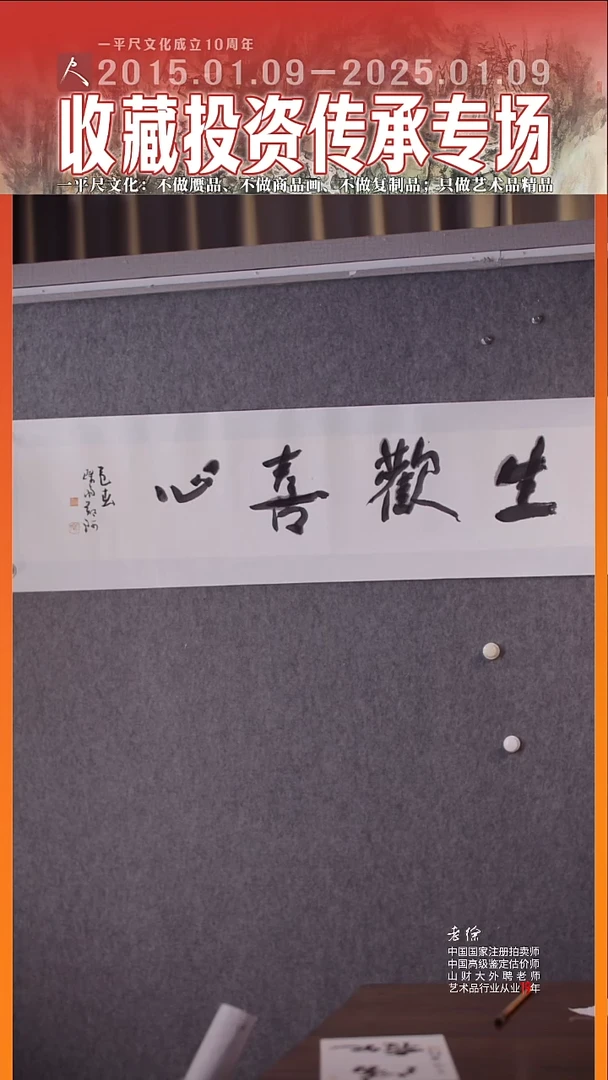 一平尺文化成立10周年
2015.01.09-2025.01.09
收藏投资传承专场
一平尺文化：不做赝品、不做商品画、不做复制品；只做艺术品精品
生歡喜心
老徐
中国国家注册拍卖师
中国高级鉴定估价师
山财大外聘老师
艺术品行业从业 年